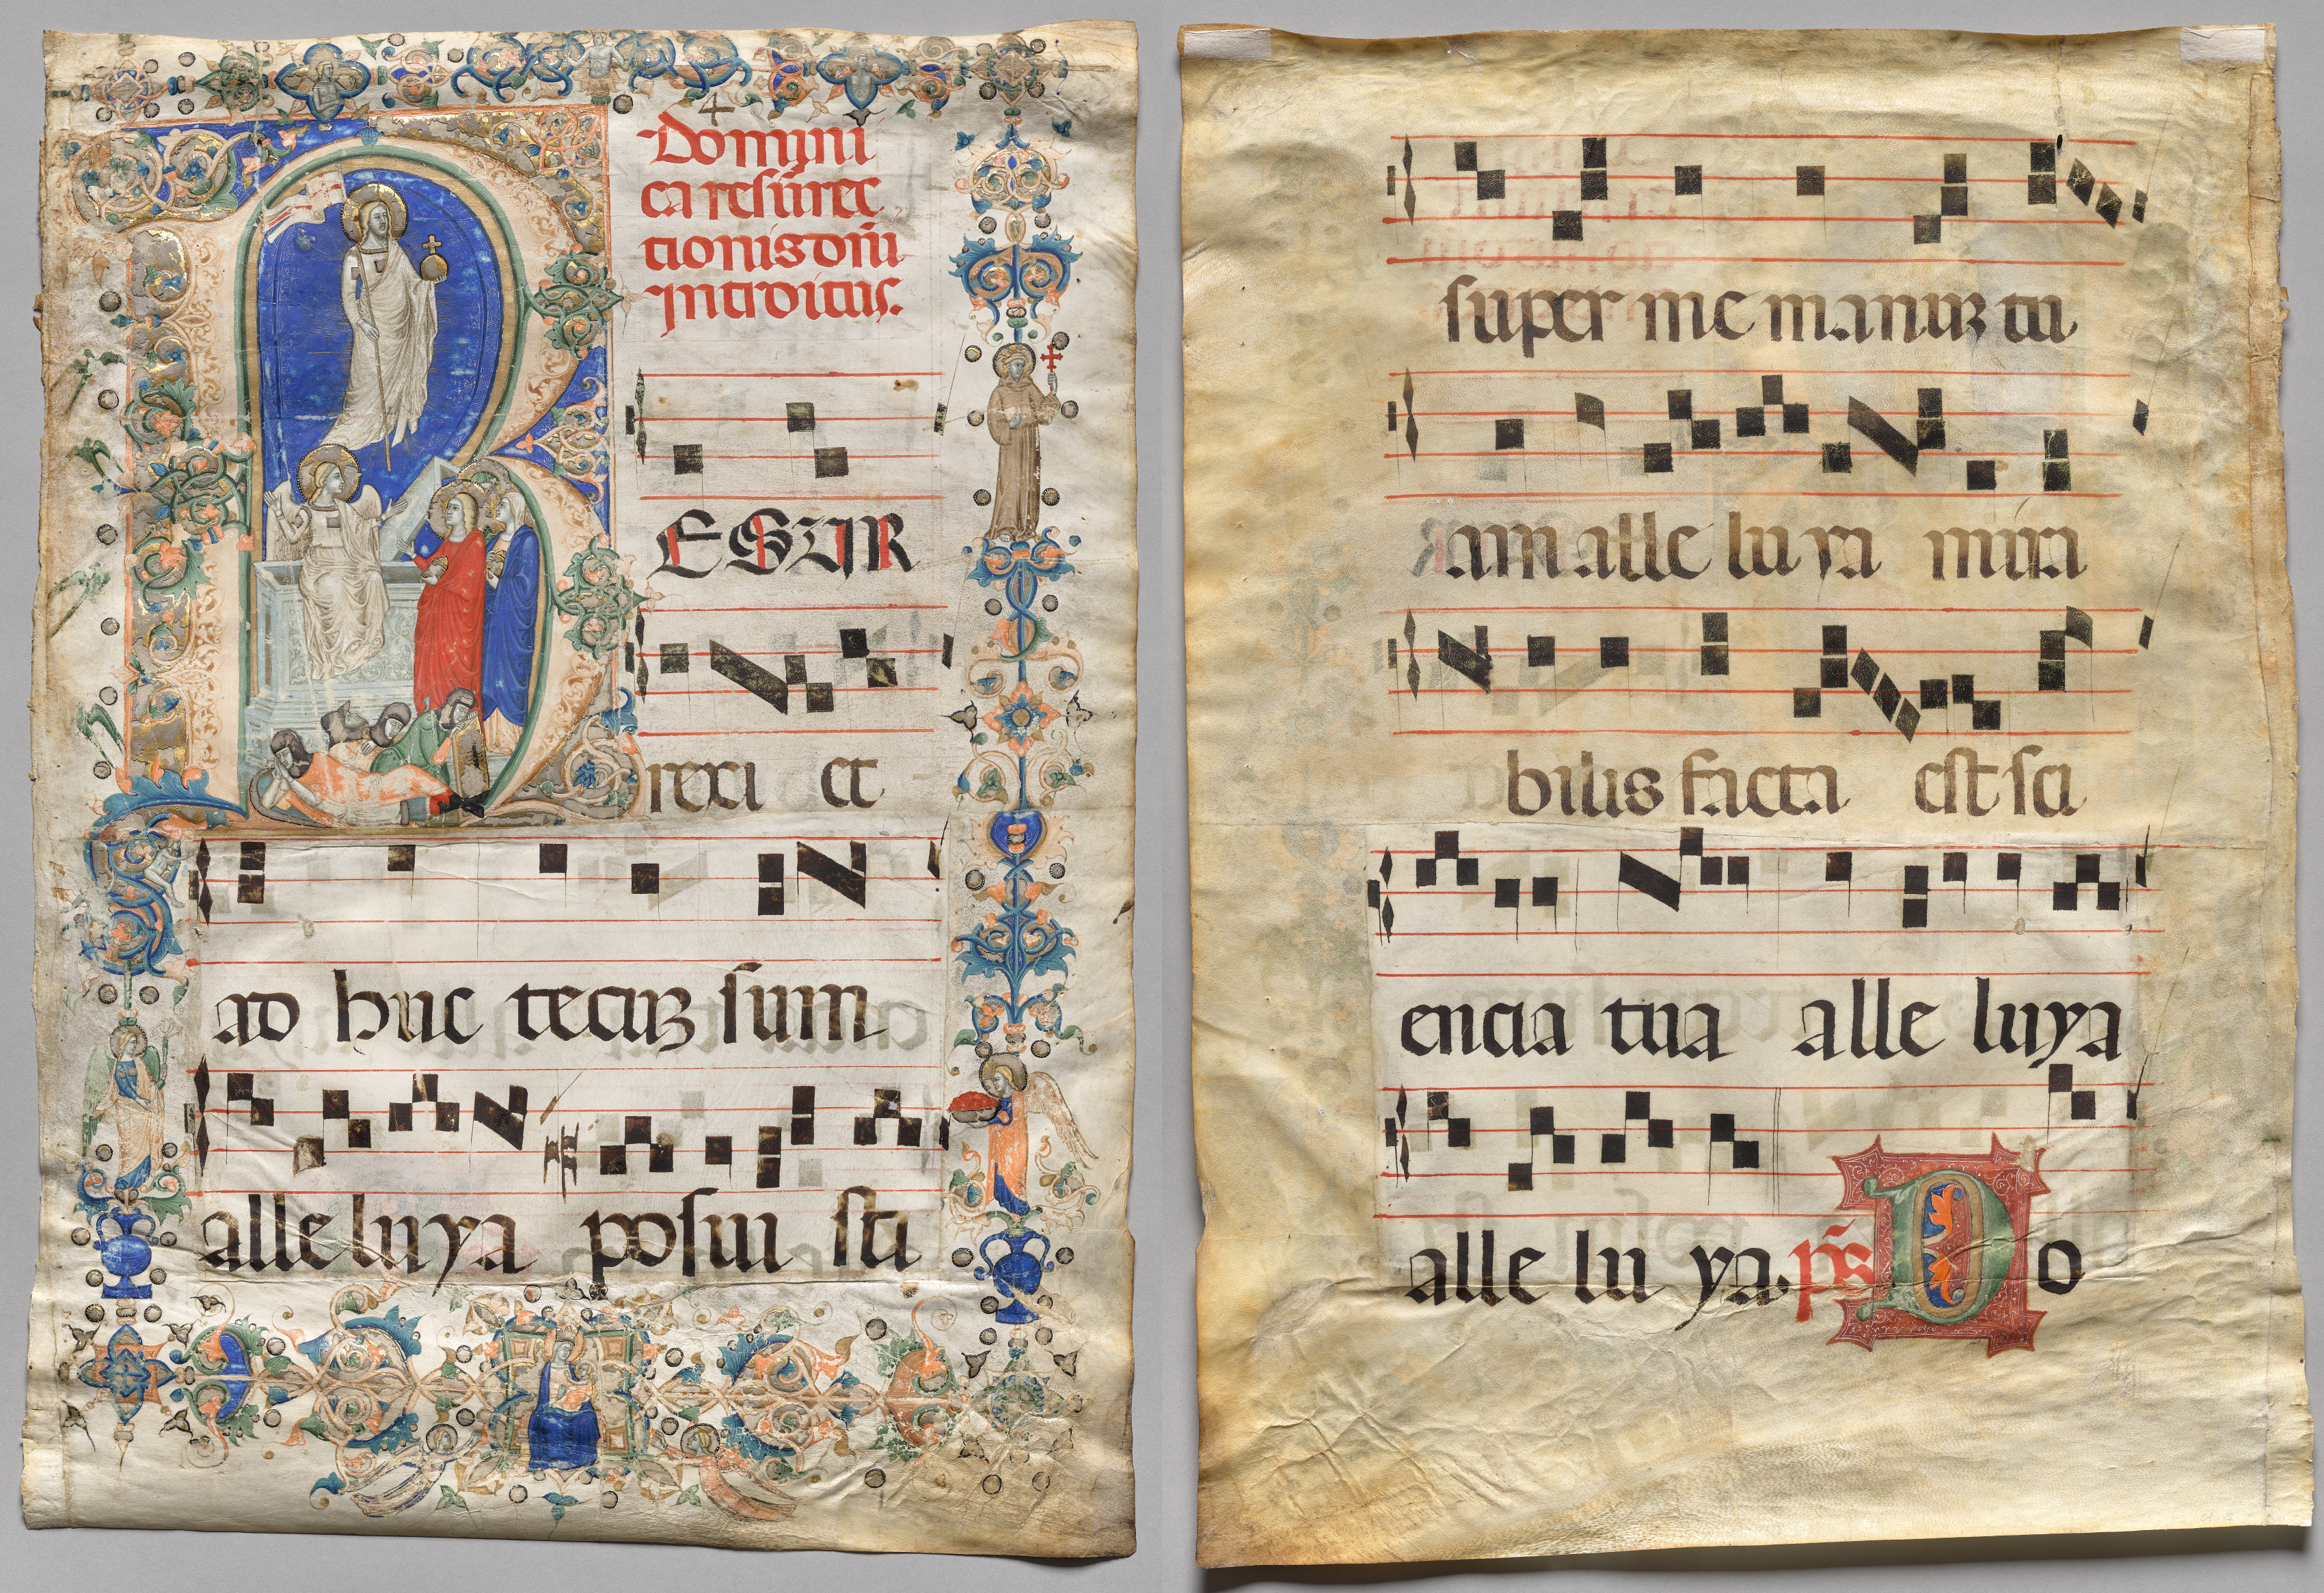 4
Domini
ca resurrec
tionis dñi
Introitus.
RESUR
rexi et
ad huc tecuꝫ sum
alleluya posui sti
super me manuꝫ tu
am alle lu ya mira
bilis facta est sci
encia tua alle luya
alle lu ya. p̃s Do